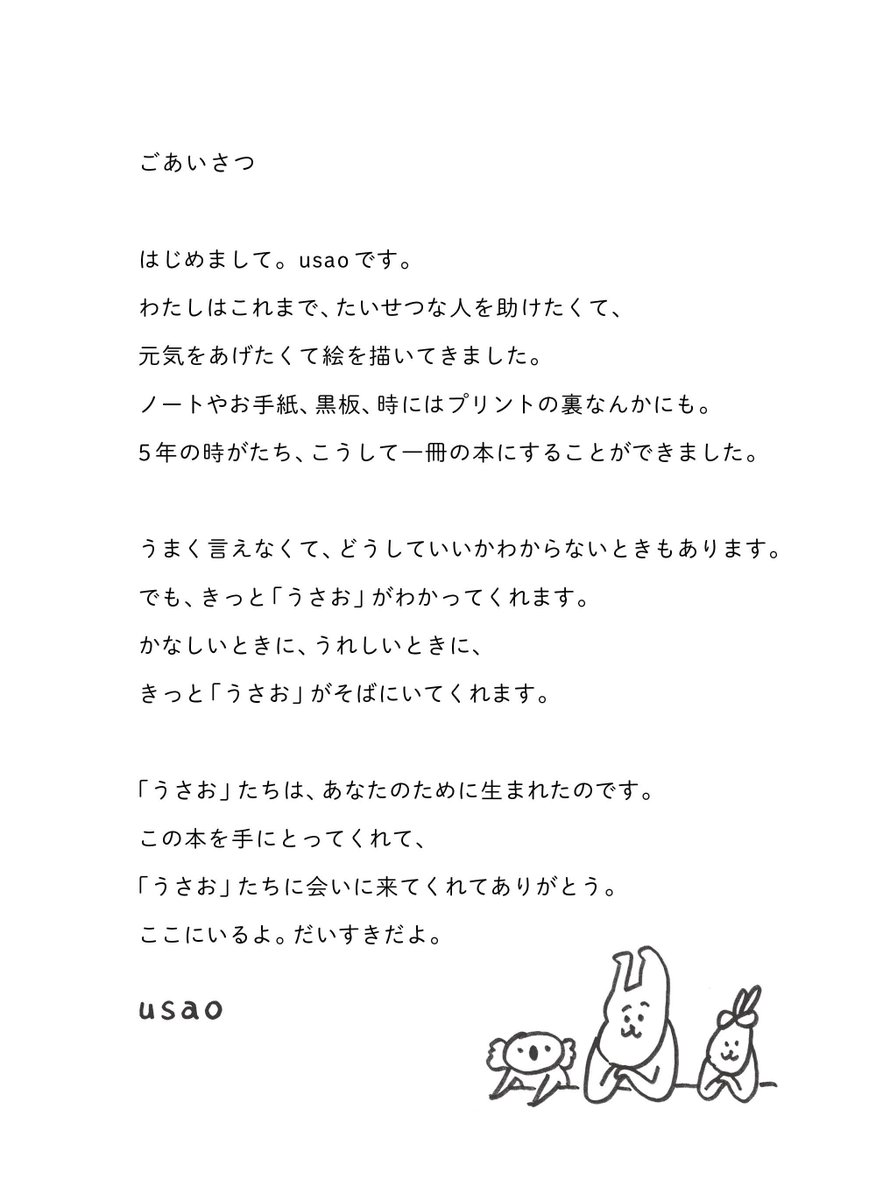 ごあいさつ
はじめまして。usaoです。
わたしはこれまで、たいせつな人を助けたくて、
元気をあげたくて絵を描いてきました。
ノートやお手紙、黒板、時にはプリントの裏なんかにも。
5年の時がたち、こうして一冊の本にすることができました。
うまく言えなくて、どうしていいかわからないときもあります。
でも、きっと「うさお」がわかってくれます。
かなしいときに、うれしいときに、
きっと「うさお」がそばにいてくれます。
「うさお」たちは、あなたのために生まれたのです。
この本を手にとってくれて、
「うさお」たちに会いに来てくれてありがとう。
ここにいるよ。だいすきだよ。
usao